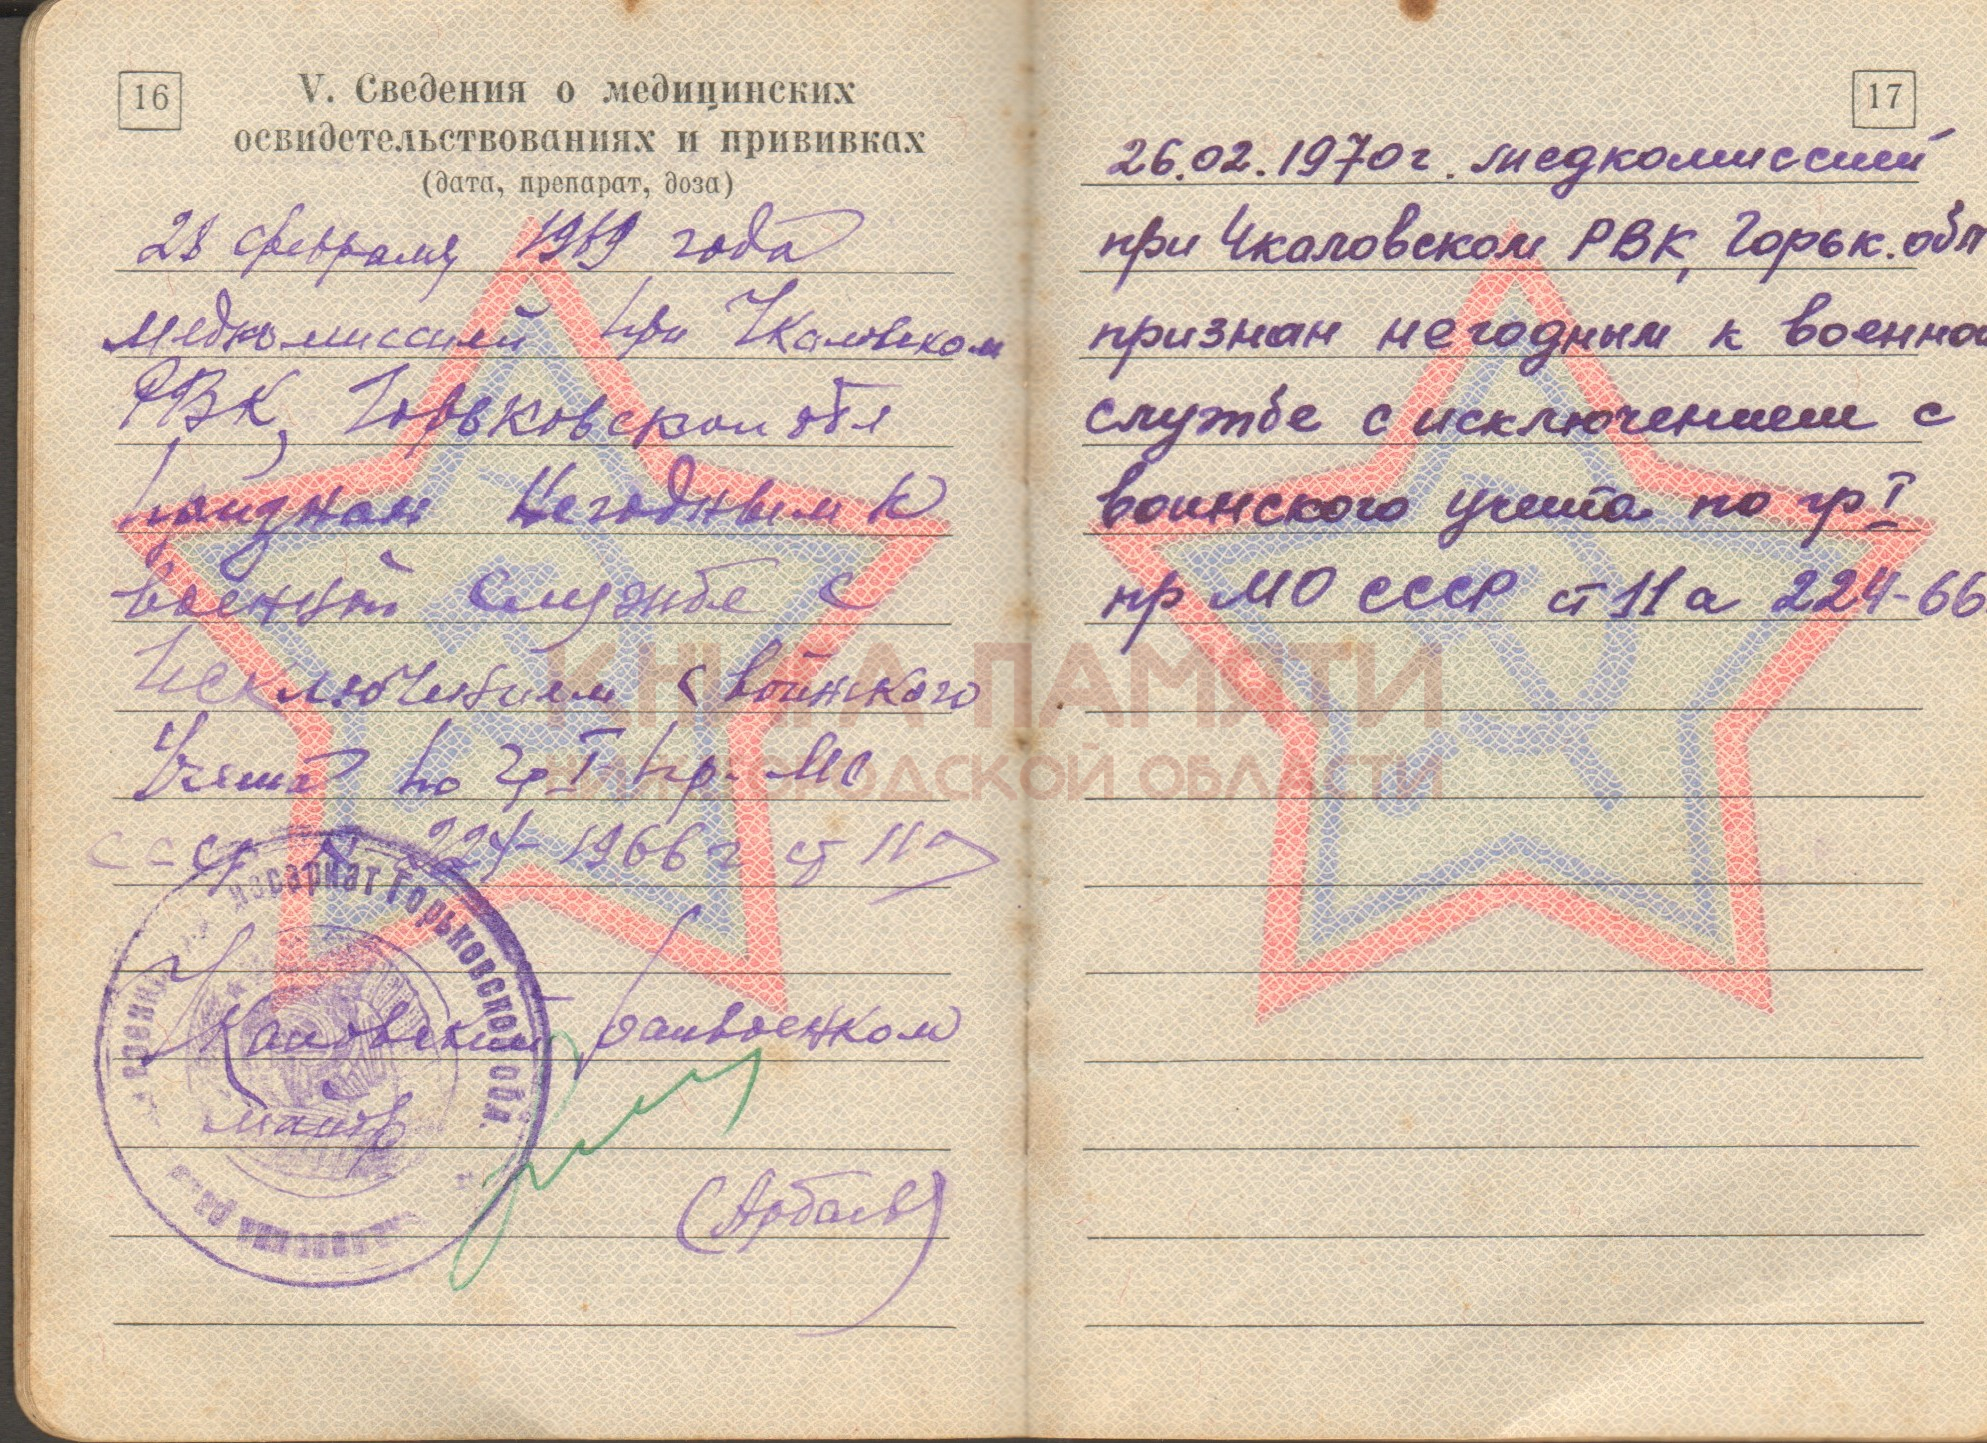 16
V. Сведения о медицинских
освидетельствованиях и прививках
(дата, препарат, доза)
28 февраля 1969 года
медкомиссией при Чкаловском
РВК, Горьковской обл
признан негодным к
военной службе с
исключением с воинского
учета по гр I пр. МО
СССР 224-1966 г ст 11а
Чкаловский райвоенком
майор
комиссариат Горьковской обл.
17
26.02.1970г. медкомиссией
при Чкаловском РВК, Горьк. обл
признан негодным к военной
службе с исключением с
воинского учета по гр I
пр МО СССР ст 11а 224-66
КНИГА ПАМЯТИ
НИЖЕГОРОДСКОЙ ОБЛАСТИ